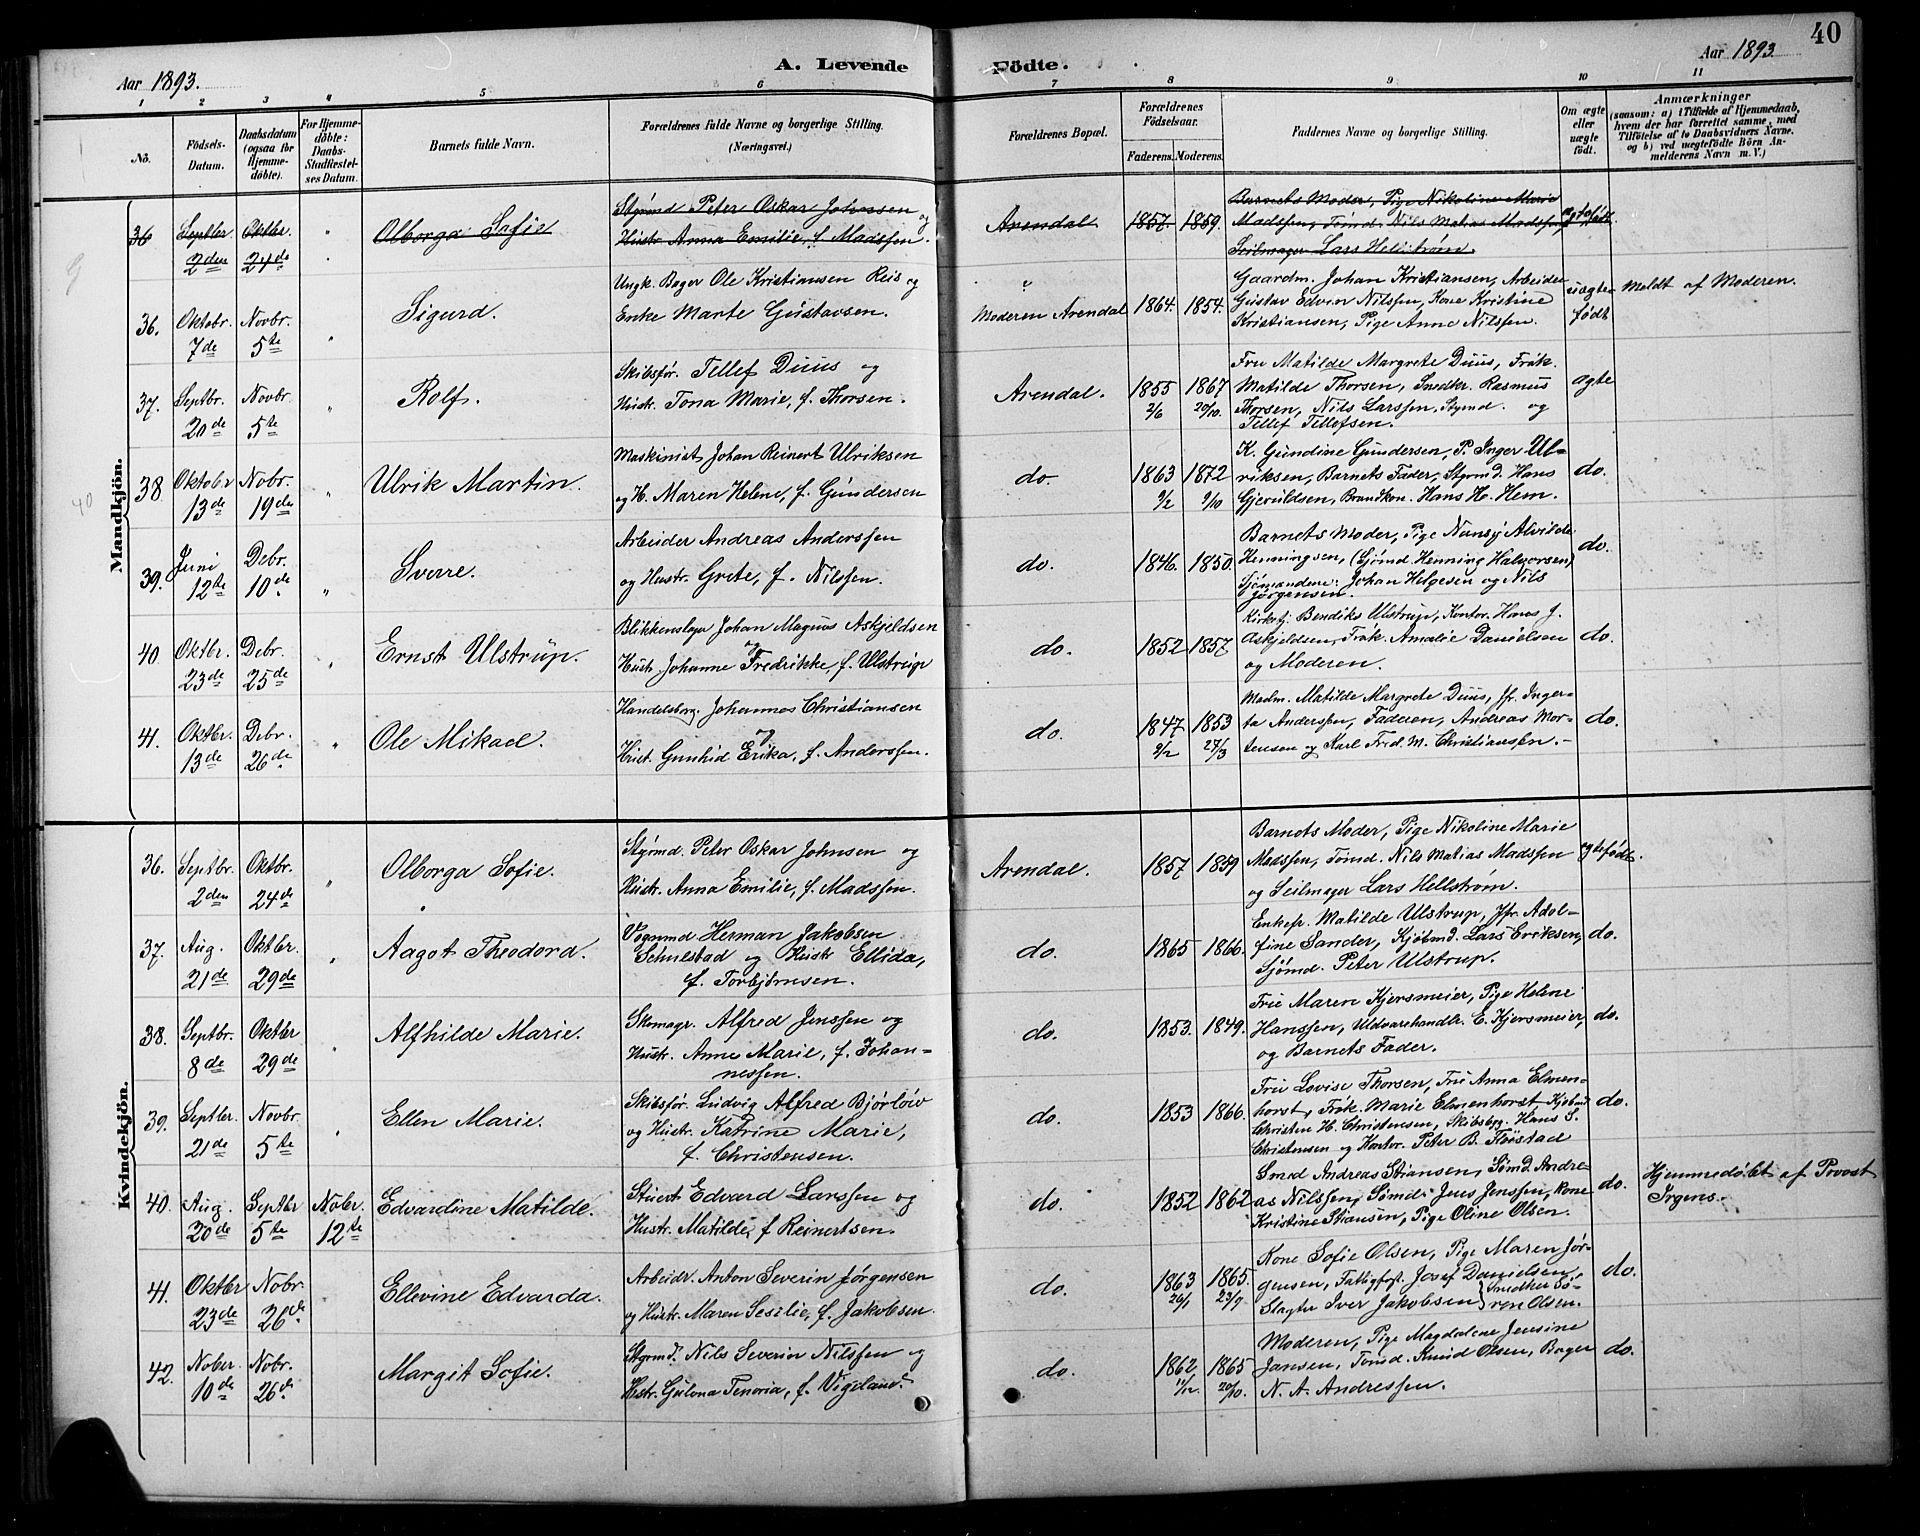 Aar 1893.
A. Levende Födte.
Aar 1893.
40
1 2 3 4 5 6 7 8 9 10 11
No.
Födsels-Datum.
Daabsdatum (ogsaa for Hjemmedöbte).
For Hjemmedöbte: Daabs-Stadfæstelses Datum.
Barnets fulde Navn.
Forældrenes fulde Navne og borgerlige Stilling. (Næringsvei.)
Forældrenes Bopæl.
Forældrenes Födselsaar.
Faderens. Moderens.
Faddernes Navne og borgerlige Stilling.
Om ægte eller uægte födt.
Anmærkninger
(saasom: a) i Tilfælde af Hjemmedaab, hvem der har forrettet samme, med Tilföielse af to Daabsvidners Navne. og b) ved uægtefödte Börn Anmelderens Navn m. V.)
Mandkjön.
36 Septbr. 2den Oktbr. 24de " Olborga Sofie
Styrmd Peter Oskar Johnsen og
Hustr Anna Emilie, f. Madssen.
Arendal 1857. 1859.
Barnets Moder, Pige Nikoline Marie
Madssen, Tømd. Nils Matias Madssen
Seilmager Lars Hellstrøm.
ægtefødt
36. Oktobr. 7de Novbr. 5te " Sigurd.
Ungk. Bager Ole Kristiansen Reis og
Enke Marte Gustavsen.
Moderen Arendal 1864. 1854.
Gaardm. Johan Kristiansen, Arbeider
Gustav Edvin Nilssen, Kone Kristine
Kristiansen, Pige Anne Nilssen.
uægte født
Meldt af Moderen.
37. Septbr. 20de Novbr. 5te " Rolf.
Skibsfør. Tellef Duus og
Hustr. Tona Marie, f. Thorsen.
Arendal. 1855 2/6 1867 20/10.
Fru Matilde Margrete Duus, Frøk.
Matilde Thorsen, Snedkr. Rasmus
Thorsen, Nils Larssen, Stymd. og
Tellef Tellefsen.
ægte
38 Oktobr 13de Nobr. 19de " Ulrik Martin.
Maskinist Johan Reinert Ulriksen
og H. Maren Helene, f. Gundersen
do. 1863 9/2 1872 9/10
K. Gundine Gundersen, P. Inger Ul-
riksen, Barnets Fader, Styrmd. Hans
Gjeruldsen, Brandkon. Hans H. Hem.
do.
39. Juni 12te Debr. 10de " Sverre.
Arbeider Andreas Anderssen
og Hustr. Grete, f. Nilssen.
do. 1846. 1850.
Barnets Moder, Pige Nansy Alvilde
Henningsen, (Sjømd Henning Halvorsen)
Sjømændene: Johan Helgesen og Nils
Jørgensen.
do.
40. Oktbr. 23de Debr. 25de " Ernst Ulstrup.
Blikkenslager Johan Magnus Askjeldsen
og
Hustr. Johanne Fredrikke, f. Ulstrup
do. 1852 1857
Kirkstj: Bendiks Ulstrup, Kontor. Hans J.
Askjeldsen, Frøk. Amalie Danielsen
og Moderen.
do.
41. Oktbr. 13de Debr. 26de " Ole Mikael.
Handelsborg. Johannes Christiansen
og
Hust. Gunhid Erika, f. Anderssen.
do. 1847 9/2 1853 27/3
Madm. Matilde Margrete Duus, Jfr. Inger-
ta Anderssen, Faderen, Andreas Mor-
tensen og Karl Fred. M. Christianssen.-
do.
Kvindekjön.
36. Septbr. 2den Oktbr. 24de " Olborga Sofie.
Styrmd. Peter Oskar Johnsen og
Hustr. Anna Emilie, f. Madssen.
Arendal. 1857 1859
Barnets Moder, Pige Nikoline Marie
Madssen, Tømd. Nils Matias Madssen
og Seilmager Lars Hellstrøm.
ægtefødt.
37. Aug. 21de Oktbr. 29de " Aagot Theodora.
Vognmd. Herman Jakobsen
Schulstad og Hustr Ellida,
f. Torbjørnsen.
do. 1865 1866.
Enkefr. Matilde Ulstrup, Jfr. Adol-
fine Sander, Kjøbmd. Lars Eriksen,
Sjømd. Peter Ulstrup.
do.
38. Septbr. 8de Oktbr 29de " Alfhilde Marie.
Skomagr. Alfred Jenssen og
Hustr. Anne Marie, f. Johan-
nessen.
do. 1853. 1849.
Fru Maren Kjersmeier, Pige Helene
Hanssen, Uldvarehandlr. E. Kjersmeier,
og Barnets Fader.
do.
39. Septbr. 21de Novbr. 5te " Ellen Marie.
Skibsfør. Ludvig Alfred Bjørlow
og Hustr. Katrine Marie,
f. Christensen.
do. 1853 1866.
Fru Lovise Thorsen, Fru Anna Elmen-
horst, Frøk. Marie Elmenhorst, Kjøbmd
Christen H. Christensen, Skibsbgg. Hans S.
Christensen og Kontor. Peter B. Fløistad
do.
40. Aug. 20de Septbr 5te Nobr. 12te Edvardine Matilde.
Stuert Edvard Larssen og
Hustr. Matilde, f Reinertsen.
do. 1852 1862
Smed Andreas Stiansen, Tømd. Andre-
as Nilssen, Sømd. Jens Jenssen, Kone
Kristine Stiansen, Pige Oline Olsen.
do.
Hjemmedøbt af Provst
Irgens.
41. Oktbr 23de Nobr. 26de Ellevine Edvarda.
Arbeidr. Anton Severin Jørgensen
og Hustr. Maren Sesilie, f. Jakobsen.
do. 1863 26/1 1865. 23/9
Kone Sofie Olsen, Pige Maren Jør-
gensen, Fattigfost. Josef Danielsen,
Slagter Iver Jakobsen, Snedker Sø-
ren Olsen.
do.
42. Nobr 10de Nobr. 26de Margit Sofie.
Styrmd. Nils Severin Nilssen og
Hstr. Gulena Tenoria, f. Vigeland.
do. 1862 11/12 1865 20/10.
Moderen, Pige Magdalene Jensine
Jansen, Tømd. Knud Olsen, Bager
N. A. Andressen.
do.